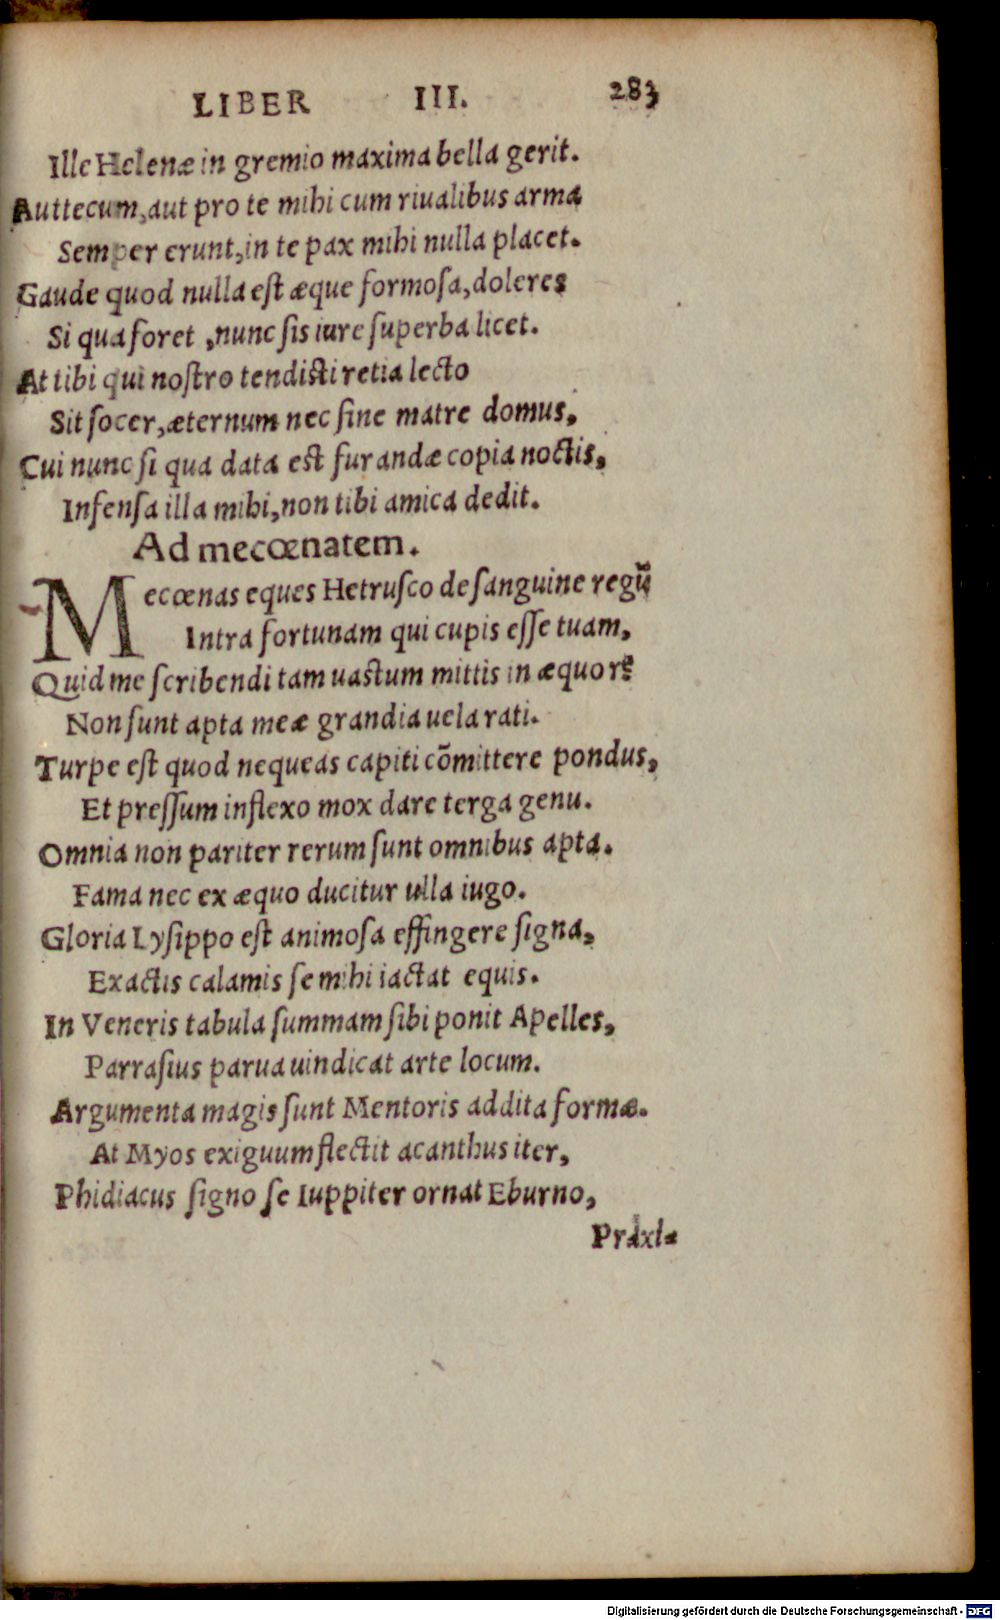 LIBER III. 283
Ille Helenæ in gremio maxima bella gerit.
Aut tecum, aut pro te mihi cum riualibus arma
Semper erunt, in te pax mihi nulla placet.
Gaude quod nulla est æque formosa, doleres
Si qua foret, nunc sis iure superba licet.
At tibi qui nostro tendisti retia lecto
Sit socer, æternum nec sine matre domus,
Cui nunc si qua data est furandæ copia noctis,
Infensa illa mihi, non tibi amica dedit.
Ad mecœnatem.
Mecœnas eques Hetrusco de sanguine regū
Intra fortunam qui cupis esse tuam,
Quid me scribendi tam uastum mittis in æquor?
Non sunt apta meæ grandia uela rati.
Turpe est quod nequeas capiti cōmittere pondus,
Et pressum inflexo mox dare terga genu.
Omnia non pariter rerum sunt omnibus apta.
Fama nec ex æquo ducitur ulla iugo.
Gloria Lysippo est animosa effingere signa,
Exactis calamis se mihi iactat equis.
In Veneris tabula summam sibi ponit Apelles,
Parrasius parua uindicat arte locum.
Argumenta magis sunt Mentoris addita formæ.
At Myos exiguum flectit acanthus iter,
Phidiacus signo se Iuppiter ornat Eburno,
Praxi-
Digitalisierung gefördert durch die Deutsche Forschungsgemeinschaft - DFG